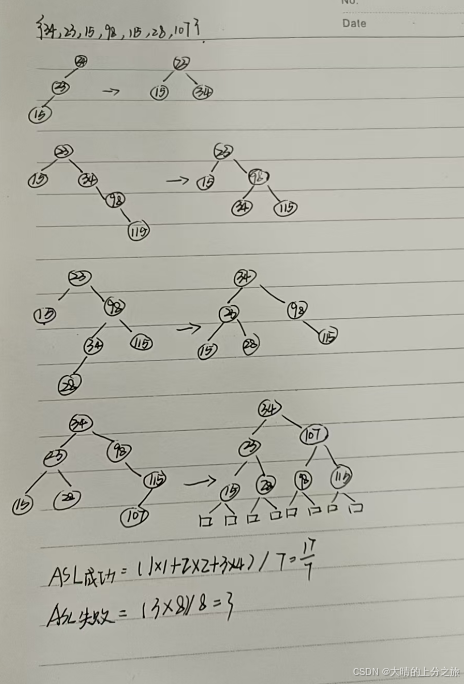 No.
Date
{34,23,15,98,115,28,107}.
34
23
23 → 15 34
15
23 23
15 34 → 15 98
98 34 115
115
23 34
15 98 23 98
34 115 → 15 28 115
28
34 34
23 98 23 107
15 28 115 → 15 28 98 115
107
ASL成功=(1×1+2×2+3×4)/7=17/7
ASL失败=(3×8)/8=3
CSDN @大晴的上分之旅